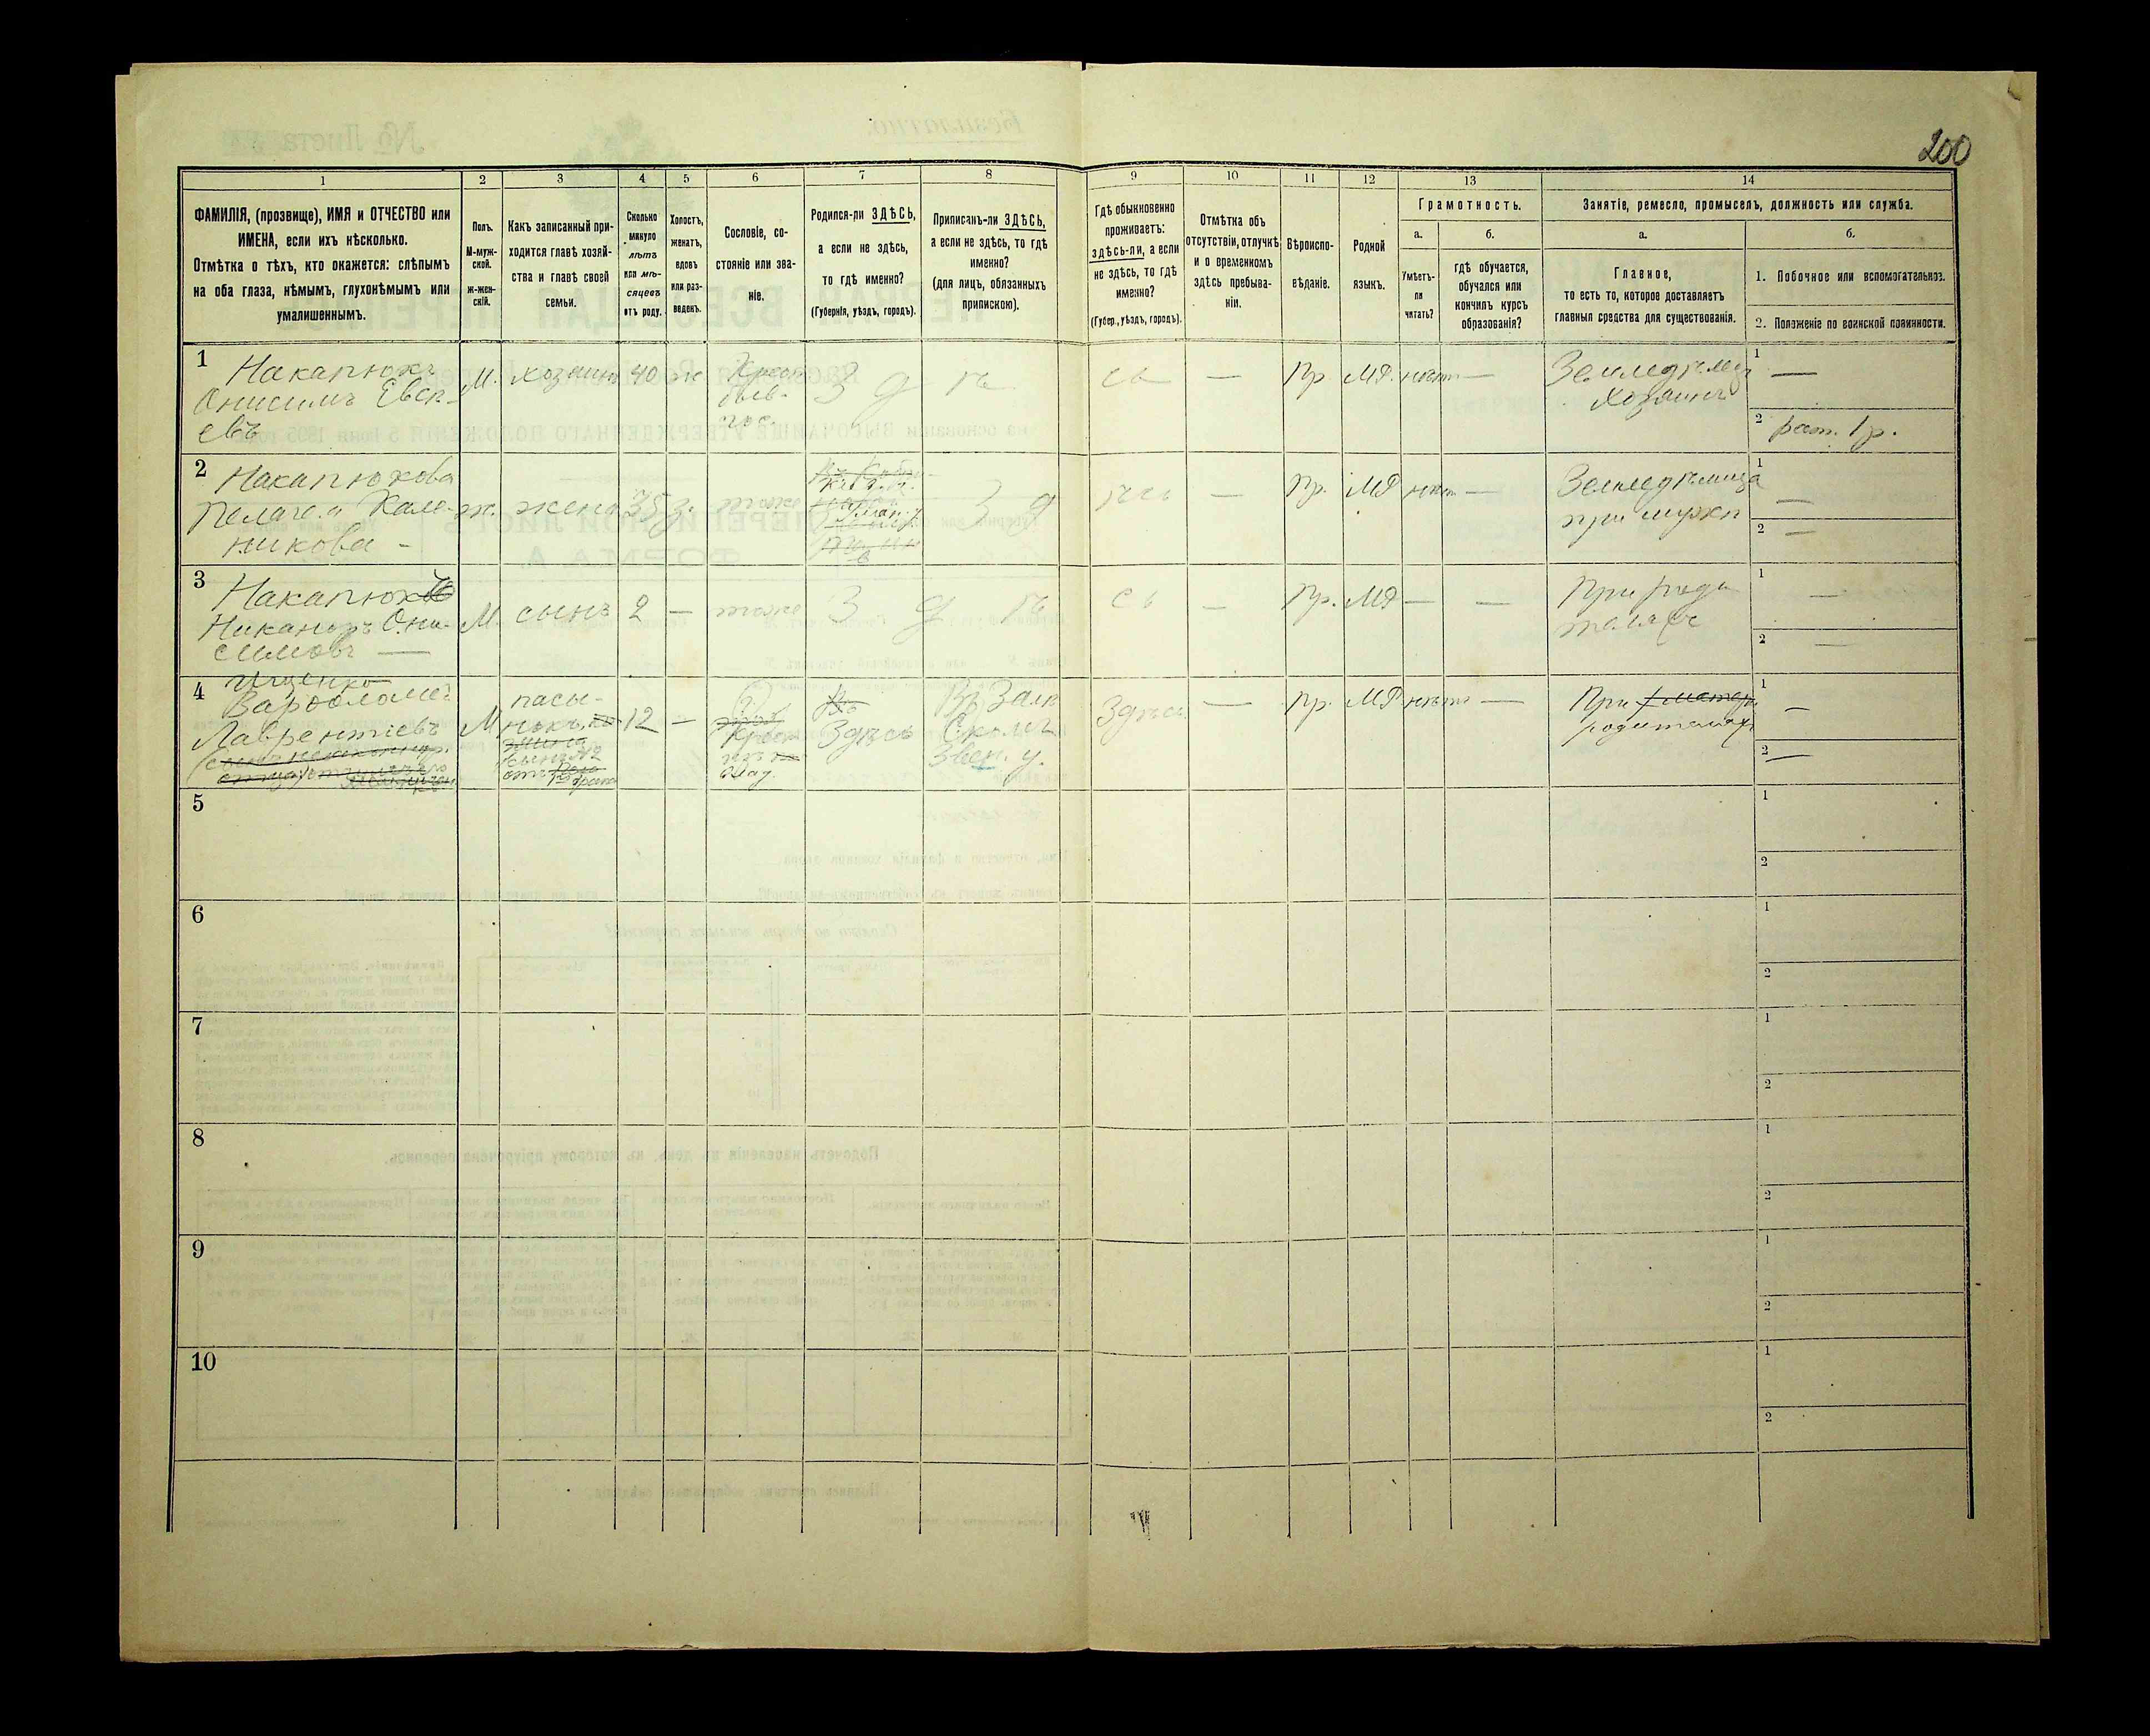 200
1
2
3
4
5
6
7
8
9
10
11
12
13
14
ФАМИЛІЯ, (прозвище), ИМЯ и ОТЧЕСТВО или
ИМЕНА, если ихъ нѣсколько.
Отмѣтка о тѣхъ, кто окажется: слѣпымъ
на оба глаза, нѣмымъ, глухонѣмымъ или
умалишеннымъ.
Полъ.
М-муж-
ской.
ж-жен-
скій.
Какъ записанный при-
ходится главѣ хозяй-
ства и главѣ своей
семьи.
Сколько
минуло
лѣтъ
или мѣ-
сяцевъ
отъ роду.
Холостъ,
женатъ,
вдовъ
или раз-
веденъ.
Сословіе, со-
стояніе или зва-
ніе.
Родился-ли ЗДѢСЬ,
а если не здѣсь,
то гдѣ именно?
(Губернія, уѣздъ, городъ).
Приписанъ-ли ЗДѢСЬ,
а если не здѣсь, то гдѣ
именно?
(для лицъ, обязанныхъ
припискою).
Гдѣ обыкновенно
проживаетъ:
здѣсь-ли, а если
не здѣсь, то гдѣ
именно?
(Губер., уѣздъ, городъ).
Отмѣтка объ
отсутствіи, отлучкѣ
и о временномъ
здѣсь пребыва-
ніи.
Вѣроиспо-
вѣданіе.
Родной
языкъ.
Грамотность.
а.
б.
Умѣетъ-
ли
читать?
гдѣ обучается,
обучался или
кончилъ курсъ
образованія?
Занятіе, ремесло, промыселъ, должность или служба.
а.
б.
Главное,
то есть то, которое доставляетъ
главныя средства для существованія.
1. Побочное или вспомогательное.
2. Положеніе по воинской повинности.
1
Накапюкъ
Онисимъ Евсѣ-
евъ
М.
хозяинъ
40
ж
Крест
З д ѣ
сь
—
Пр.
МР.
нѣтъ
—
Земледѣлец
Хозяинъ
1
—
2
рат. 1 р.
2
Накапюкова
Пелагея Кале-
никова -
ж.
жена
35
з.
тоже
З д
ѣсь
—
Пр.
МР
нѣт
—
Земледѣлица
при мужѣ
1
—
2
—
3
Накапюк
Никаноръ Они-
симовъ —
М.
сынъ
2
—
тоже
З д ѣ
сь
—
Пр.
МР
—
—
При роди
теляхъ
1
—
2
—
4
Ищенко
Варфоломей
Лаврентіевъ
М
пасы-
нокъ,
сынъ №2
12
—
Крест
Здѣсь
Звен. у.
Здѣсь
—
Пр.
МР
нѣтъ
—
При
родителяхъ
1
—
2
—
5
1
2
6
1
2
7
1
2
8
1
2
9
1
2
10
1
2